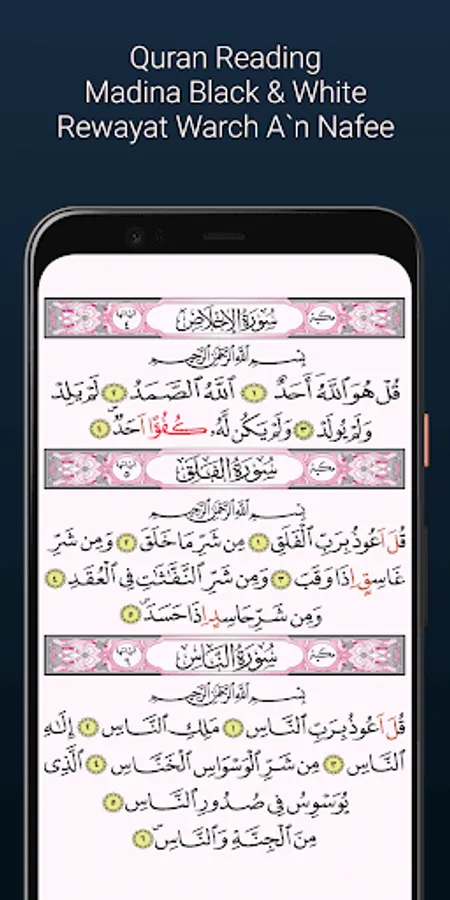 Quran Reading
Madina Black & White
Rewayat Warch A`n Nafee
مكية سُورَةُ الإِخْلَاصِ ٤
بِسْمِ اللَّهِ الرَّحْمَٰنِ الرَّحِيمِ
قُلْ هُوَ اَ۬للَّهُ أَحَدٌ ١ اَ۬للَّهُ اُ۬لصَّمَدُ ٢ لَمْ يَلِدْ
وَلَمْ يُولَدْ ٣ وَلَمْ يَكُن لَّهُۥ كُفُؤًا اَحَدٌ ٤
مكية سُورَةُ الْفَلَقِ ٥
بِسْمِ اللَّهِ الرَّحْمَٰنِ الرَّحِيمِ
قُلَ اَعُوذُ بِرَبِّ اِ۬لْفَلَقِ ١ مِن شَرِّ مَا خَلَقَ ٢ وَمِن شَرِّ
غَاسِقٍ اِذَا وَقَبَ ٣ وَمِن شَرِّ اِ۬لنَّفَّٰثَٰتِ فِي اِ۬لْعُقَدِ ٤
وَمِن شَرِّ حَاسِدٍ اِذَا حَسَدَ ٥
مكية سُورَةُ النَّاسِ ٦
بِسْمِ اللَّهِ الرَّحْمَٰنِ الرَّحِيمِ
قُلَ اَعُوذُ بِرَبِّ اِ۬لنَّاسِ ١ مَلِكِ اِ۬لنَّاسِ ٢ إِلَٰهِ
اِ۬لنَّاسِ ٣ مِن شَرِّ اِ۬لْوَسْوَاسِ اِ۬لْخَنَّاسِ ٤ اِ۬لَّذِي
يُوَسْوِسُ فِي صُدُورِ اِ۬لنَّاسِ ٥
مِنَ اَ۬لْجِنَّةِ وَالنَّاسِ ٦